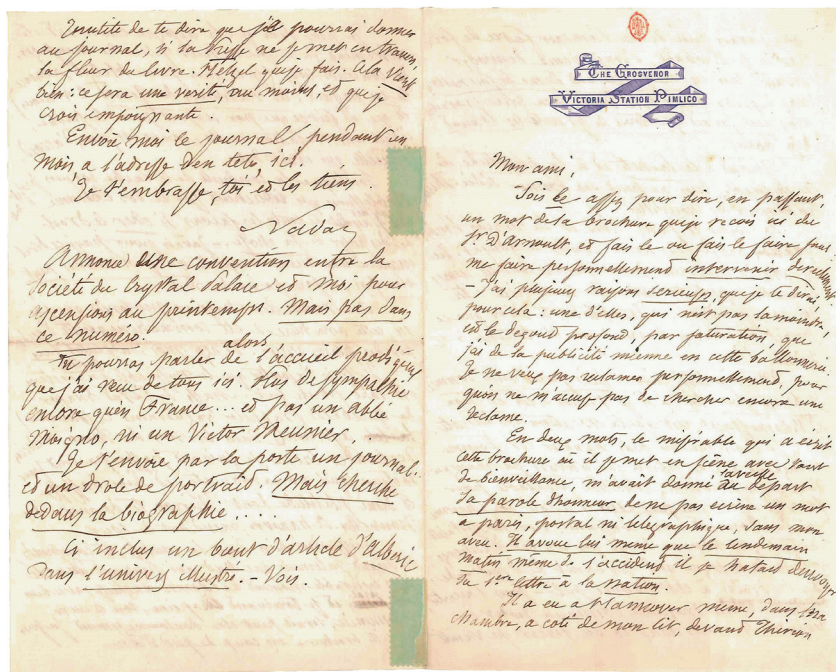 Inutile de te dire que je pourrai donner
au journal, si la Presse ne se met en travers,
la fleur du livre. Hetzel que je fais. A la
bien : ce sera une verité, au moins, et que je
crois empoignante.
Envoie moi le journal pendant un
mois, a l'adresse d'en tete, ici.
Je t'embrasse, toi et les tiens.
Nadar
Annonce une convention entre la
Société du Crystal Palace et moi pour
ascensions au printemps. Mais pas dans
ce numéro.
Tu pourras parler alors de l'accueil prodigieux
que j'ai reçu de tous ici. Plus de sympathie
encore qu'en France... et pas un abbé
Moigno, ni un Victor Meunier..
Je t'envoie par la poste un journal
et un drole de portrait. Mais cherche
dedans la biographie....
Ci inclus un bout d'article d'Alberic
dans l'univers illustré. - Vois.
THE GROSVENOR
VICTORIA STATION PIMLICO
Mon ami,
Sois le assez pour dire, en passant,
un mot de la brochure que je reçois ici du
Sr. D'Arnoult, et fais le ou fais le faire sans
me faire personnellement intervenir
- J'ai plusieurs raisons serieuses, que je te dirai,
pour cela : une d'elles, qui n'est pas la moindre,
est le degout profond, par saturation, que
j'ai de la publicité mienne en cette ballonnerie.
Je ne veux pas reclamer personnellement, pour
qu'on ne m'accuse pas de chercher encore une
reclame.
En deux mots, le misérable qui a écrit
cette brochure où il se met en scène avec tant
de bienveillance, m'avait donné au départ
sa parole d'honneur de ne pas ecrire un mot
a paris, postal ni telegraphique, sans mon
aveu. Il avoue lui meme que le lendemain
matin même de l'accident il se hatait d'envoyer
sa 1ere lettre à la Nation.
Il a eu a Hanover meme, dans ma
chambre, a coté de mon lit, devant Thirion